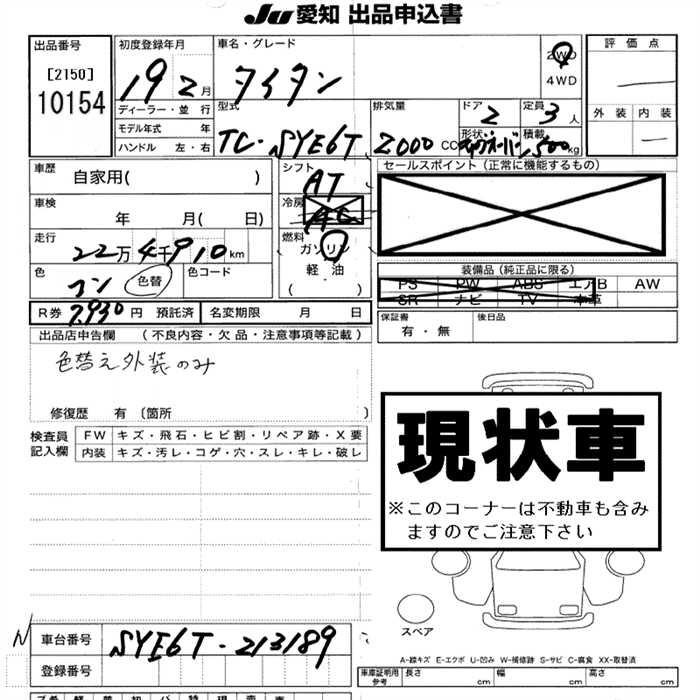 JU 愛知 出品申込書
出品番号
[2150]
10154
初度登録年月
19 2月
車名・グレード
タイタン
2WD
4WD
評価点
外装 内装
ディーラー・並行
モデル年式 年
ハンドル 左・右
型式
TC-SYE6T
排気量
2000 CC
ドア
2
定員
3人
形状
積載
500kg
車歴
自家用( )
シフト
AT
セールスポイント (正常に機能するもの)
車検
年 月( 日)
冷房
AC
走行
22万4千910km
燃料
ガソリン
軽油
( )
色
コン 色替
色コード
装備品 (純正品に限る)
PS PW ABS エアB AW
SR ナビ TV 本革
R券 7,930円 預託済
名変期限 月 日
保証書
有・無
後日品
出品店申告欄 (不良内容・欠品・注意事項等記載)
色替え外装のみ
修復歴 有〔箇所 〕
検査員
記入欄
FW キズ・飛石・ヒビ割・リペア跡・X要
内装 キズ・汚レ・コゲ・穴・スレ・キレ・破レ
現状車
※このコーナーは不動車も含み
ますのでご注意下さい
スペア
N
車台番号
SYE6T-213189
登録番号
A-線キズ E-エクボ U-凹み W-補修跡 S-サビ C-腐食 XX-取替済
車庫証明用
参考
長さ cm 幅 cm 高さ cm